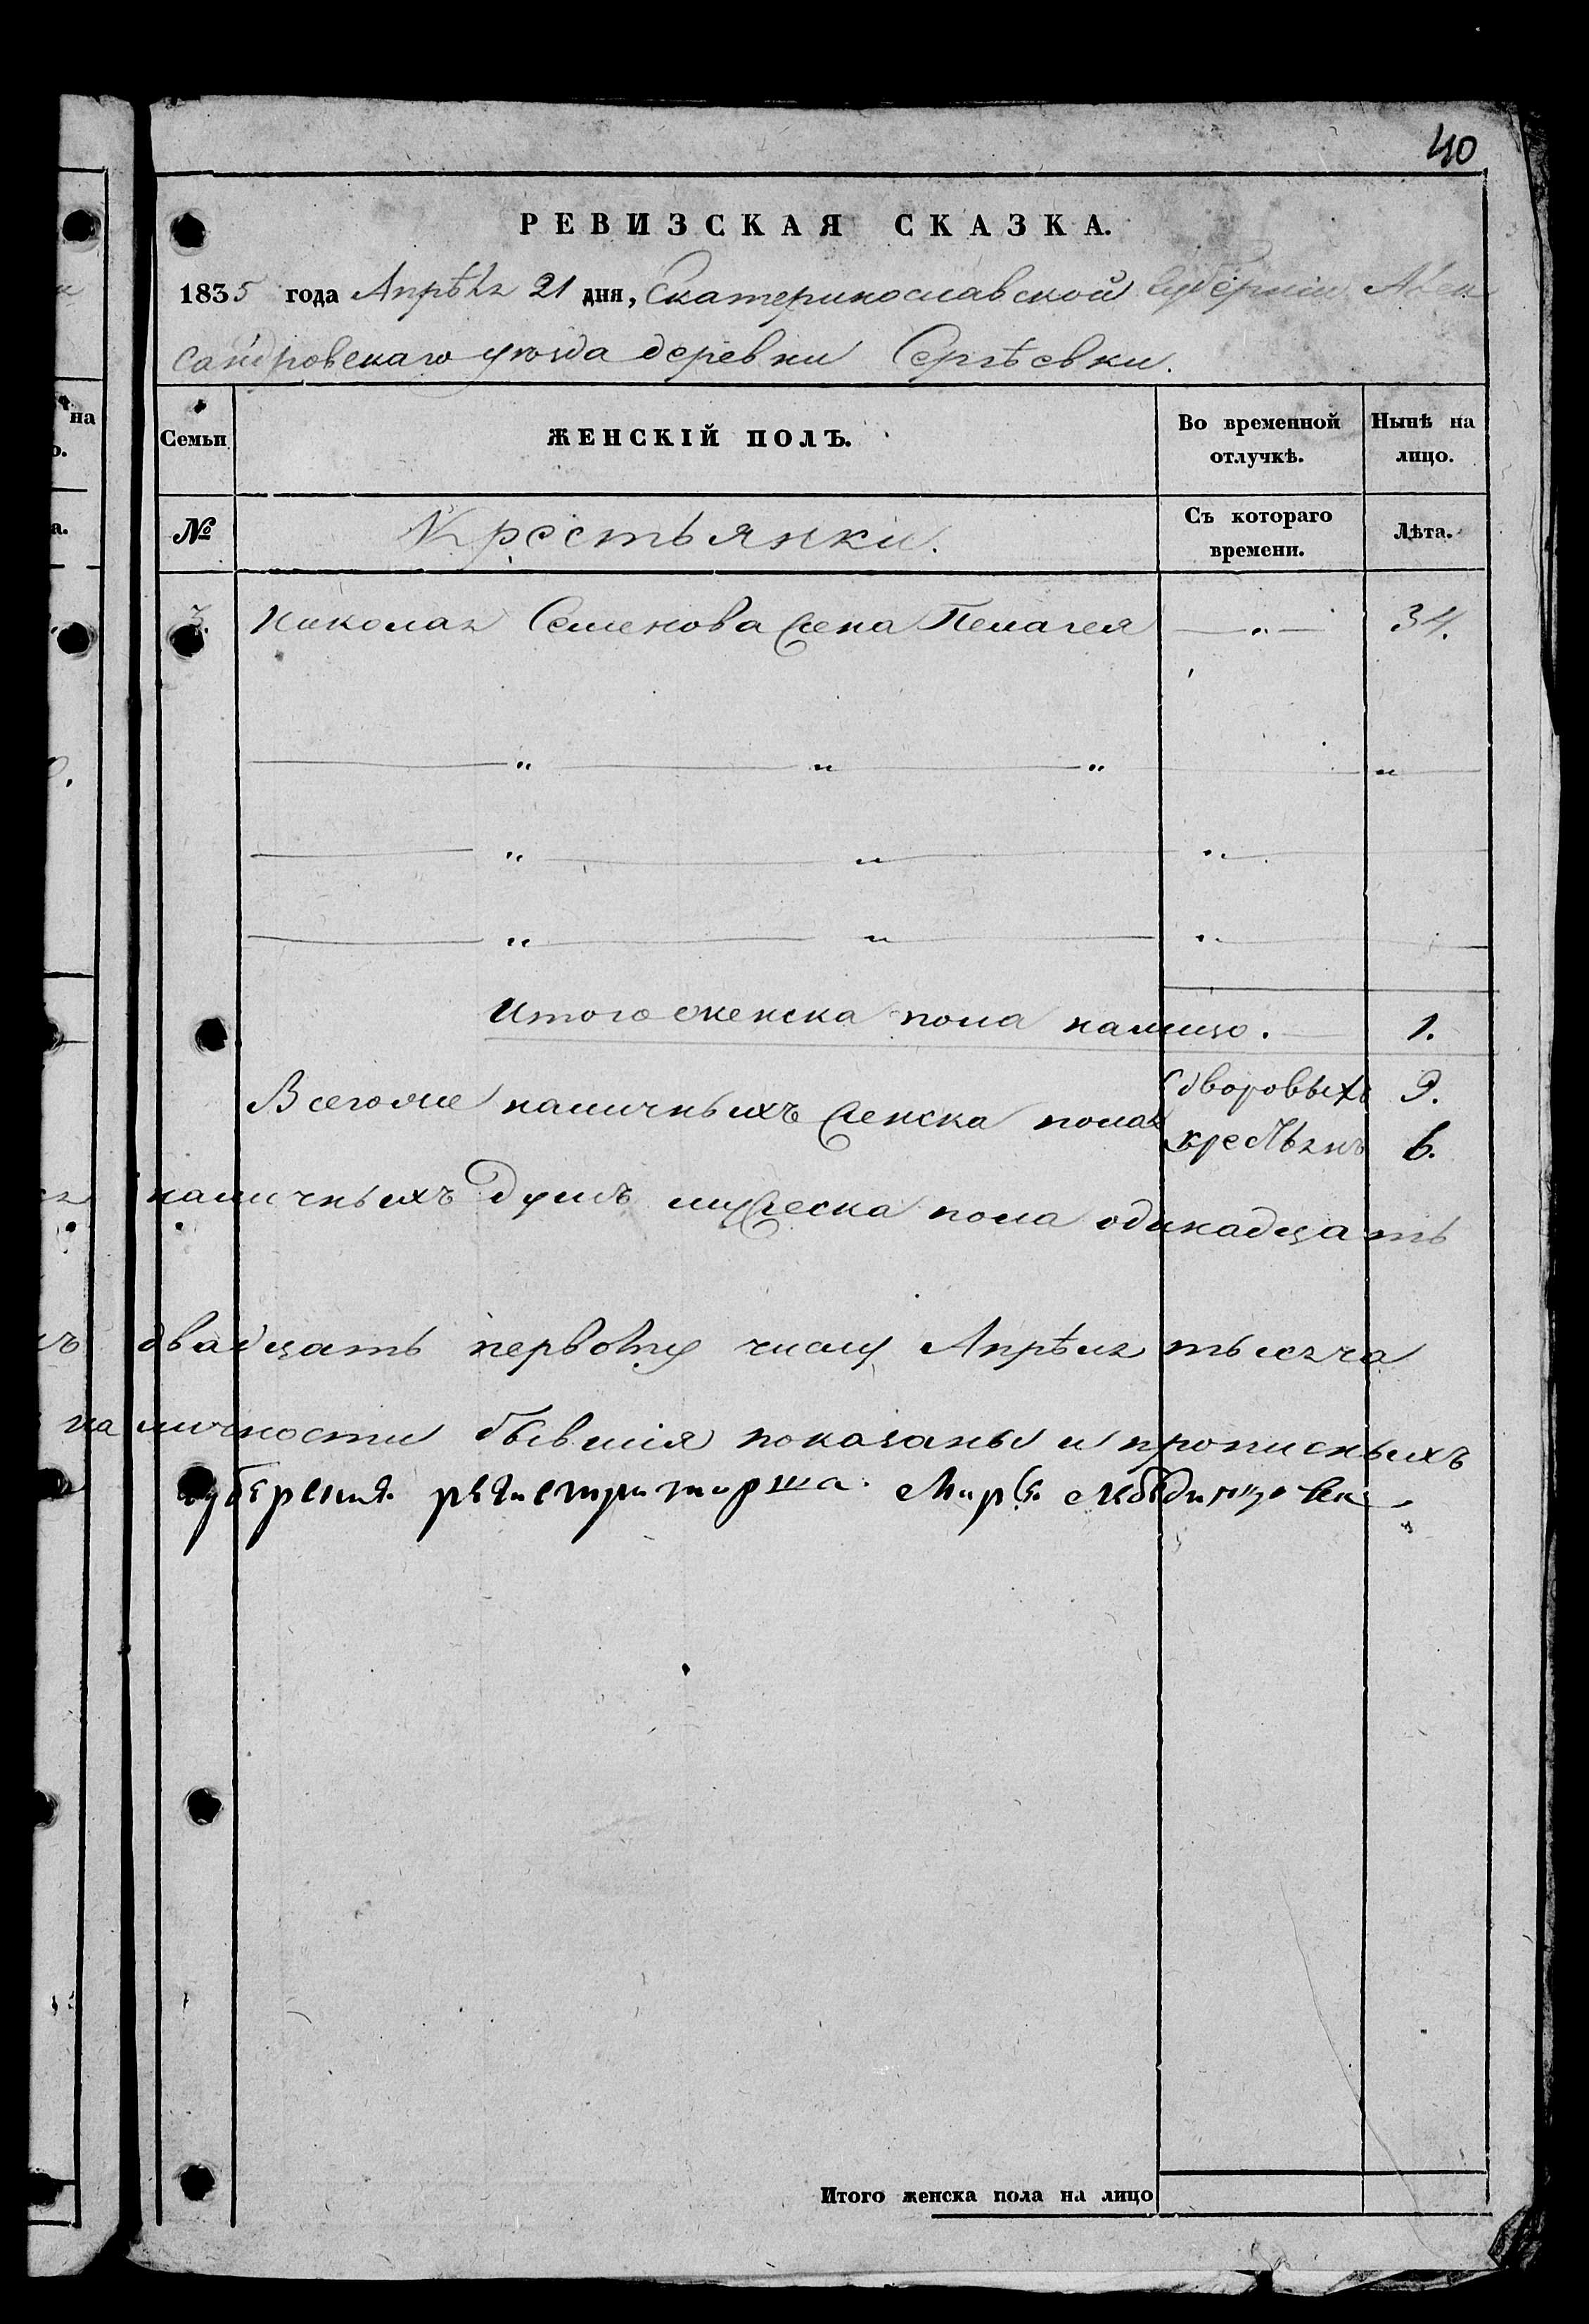 40
РЕВИЗСКАЯ СКАЗКА.
1835 года Апрѣля 21 дня, Екатеринославской Губерніи Алек
сандровскаго уѣзда деревни Сергѣевки.
Семьи
ЖЕНСКІЙ ПОЛЪ.
Во временной отлучкѣ.
Нынѣ на лицо.
№
Крестьянки.
Съ котораго времени.
Лѣта.
3. Николая Семенова жена Пелагея — „ — 34.
Итого женска пола налицо. 1.
Всегоже наличныхъ женска пола
дворовыхъ 9.
крестьянъ 6.
наличныхъ душъ мужеска пола одинадцать
двадцать первому числу Апрѣля тысяча
наличности бывшія показаны и прописныхъ
губернская регистраторша Марья
Итого женска пола на лицо